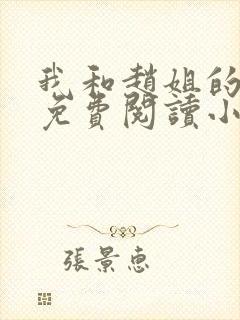 我和趙姐的
免費閱讀小
張景惠